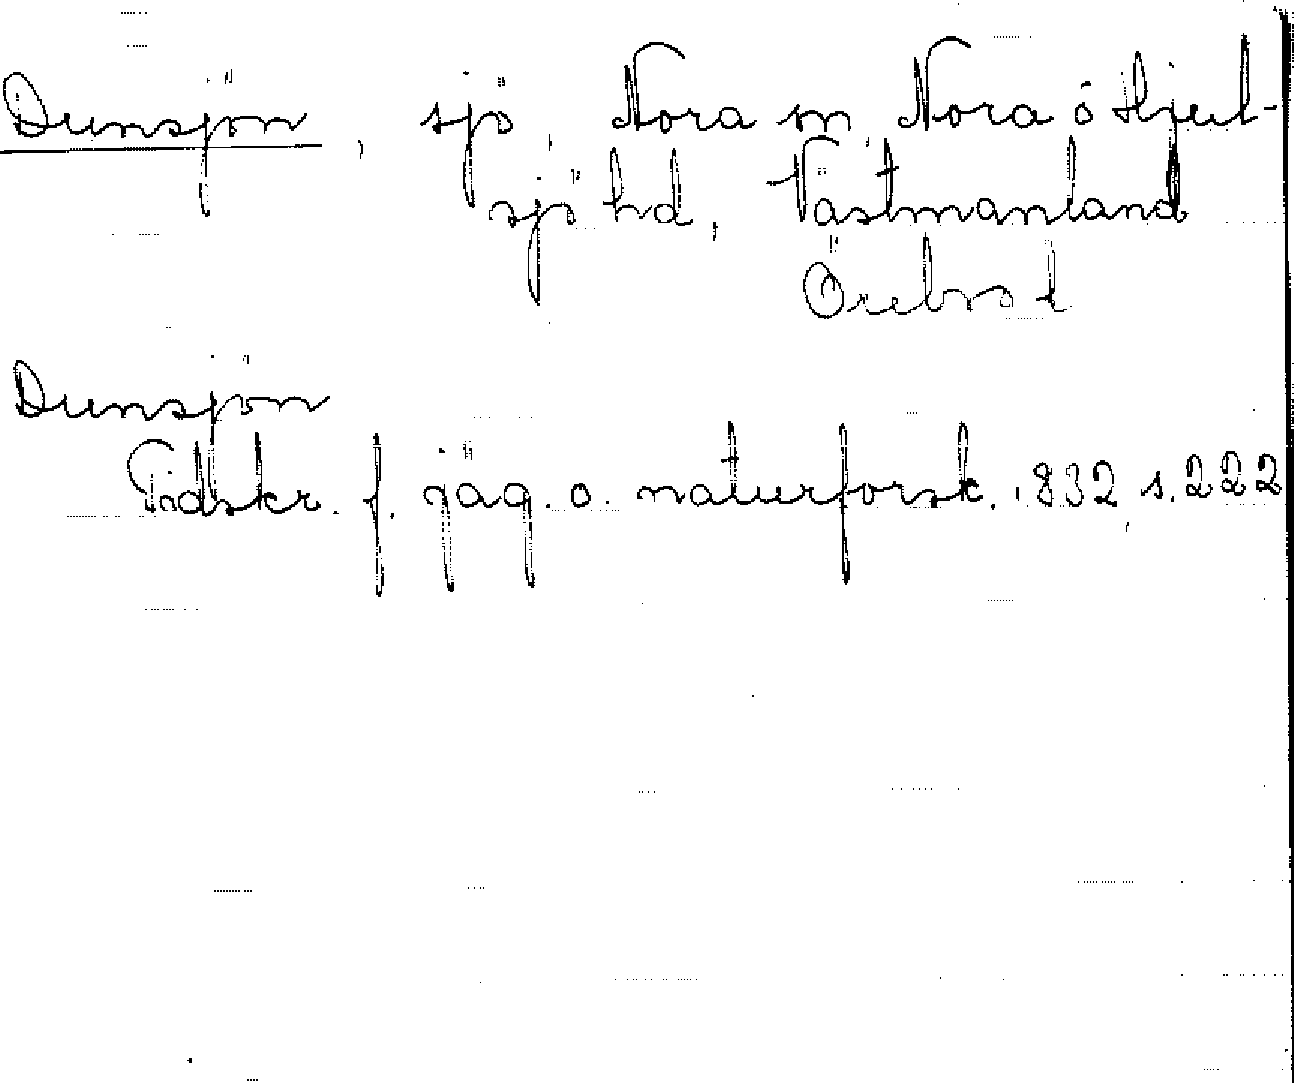 Dunsjön, sjö, Nora sn, Nora o Hjul-
sjö hd, Västmanland
Örebro l
Dunsjön
Tidskr. f. jäg. o. naturforsk. 1832 s. 222